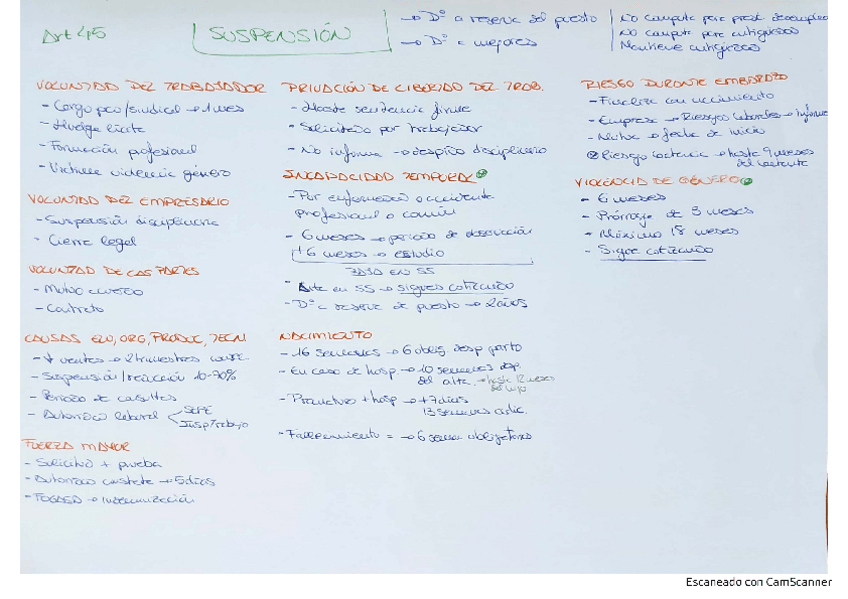 Art 45
SUSPENSIÓN
→ Dº a reserva del puesto
→ Dº a mejoras
No computa para prest. desempleo
No computa para antigüedad
Mantiene antigüedad
VOLUNTAD DEL TRABAJADOR
- Cargo pco/sindical → 1 mes
- Huelga lícita
- Formación profesional
- Víctima violencia género
VOLUNTAD DEL EMPRESARIO
- Suspensión disciplinaria
- Cierre legal
VOLUNTAD DE LAS PARTES
- Mutuo acuerdo
- Contrato
CAUSAS ECO, ORG, PRODUC, TECN
- ↓ ventas → 2 trimestres
- Suspensión/reducción 10-70%
- Periodo de consultas
- Autoridad laboral
SEPE
Insp Trabajo
FUERZA MAYOR
- Solicitud + prueba
- Autoridad constata → 5 días
- FOGASA → Indemnización
PRIVACIÓN DE LIBERTAD DEL TRAB.
- Hasta sentencia firme
- Solicitado por trabajador
- No informa → despido disciplinario
INCAPACIDAD TEMPORAL
- Por enfermedad o accidente
profesional o común
- 6 meses → periodo de observación
+6 meses → estudio
- Alta en SS → sigues cotizando
- Dº a reserva de puesto → 2 años
NACIMIENTO
- 16 semanas → 6 oblig desp parto
- En caso de hosp → 10 semanas desp.
del alta.
- Prematuro + hosp → +7 días
13 semanas adic.
- Fallecimiento = → 6 seman obligatorias
RIESGO DURANTE EMBARAZO
- Finaliza con nacimiento
- Empresa → Riesgos laborales → informe
- Mutua → fecha de inicio
Riesgo lactancia → hasta 9 meses
del lactante
VIOLENCIA DE GÉNERO
- 6 meses
- Prórroga de 3 meses
- Máximo 18 meses
- Sigue cotizando
Escaneado con CamScanner